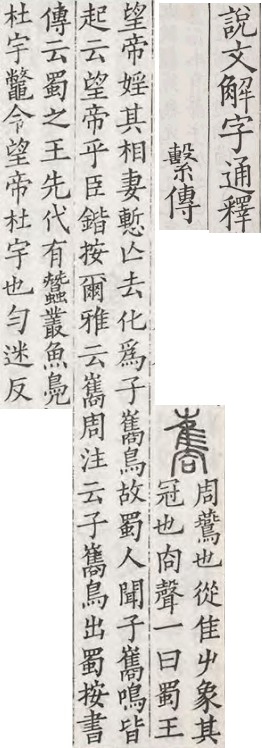 說文解字通釋
繫傳
巂 周䴏也從隹屮象其
冠也㕯聲一曰蜀王
望帝婬其相妻慙亾去化爲子巂鳥故蜀人聞子巂鳴皆
起云望帝乎臣鍇按爾雅云巂周注云子巂鳥出蜀按書
傳云蜀之王先代有蠶叢魚鳧
杜宇鼈令望帝杜宇也勻迷反